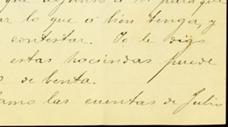 ar lo que á bien tenga, y
contestar. Yo le digo
estas haciendas puede
o de venta.
amo las cuentas de Julio